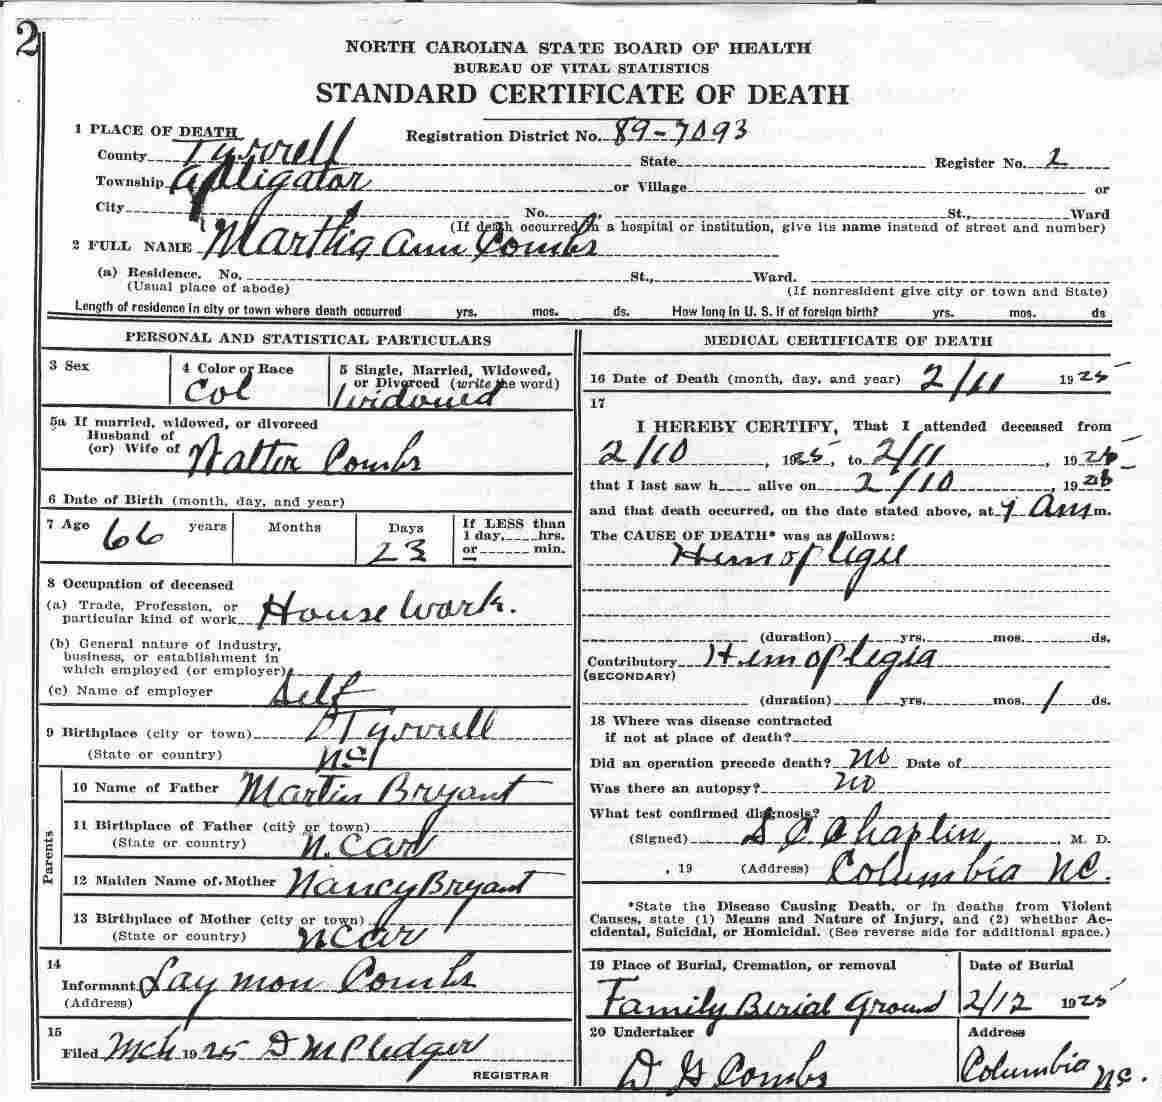 2
NORTH CAROLINA STATE BOARD OF HEALTH
BUREAU OF VITAL STATISTICS
STANDARD CERTIFICATE OF DEATH
1 PLACE OF DEATH Registration District No. 89-7093
County Tyrrell State Register No. 2
Township Alligator or Village or
City No. , St., Ward
(If death occurred in a hospital or institution, give its name instead of street and number)
2 FULL NAME Martha Ann Combs
(a) Residence. No. St., Ward.
(Usual place of abode) (If nonresident give city or town and State)
Length of residence in city or town where death occurred yrs. mos. ds. How long in U. S. if of foreign birth? yrs. mos. ds
PERSONAL AND STATISTICAL PARTICULARS
3 Sex
4 Color or Race
Col
5 Single, Married, Widowed,
or Divorced (write the word)
Widowed
5a If married, widowed, or divorced
Husband of
(or) Wife of Walter Combs
6 Date of Birth (month, day, and year)
7 Age 66 years Months Days 23
If LESS than
1 day, hrs.
or min.
8 Occupation of deceased
(a) Trade, Profession, or
particular kind of work House Work.
(b) General nature of industry,
business, or establishment in
which employed (or employer)
(c) Name of employer Self
9 Birthplace (city or town) Tyrrell
(State or country) NC
Parents
10 Name of Father Martin Bryant
11 Birthplace of Father (city or town)
(State or country) N. Car
12 Maiden Name of Mother Nancy Bryant
13 Birthplace of Mother (city or town)
(State or country) N Car
14
Informant Laymon Combs
(Address)
15
Filed Mch 1925 D M Pledger
REGISTRAR
MEDICAL CERTIFICATE OF DEATH
16 Date of Death (month, day, and year) 2/11 1925
17
I HEREBY CERTIFY, That I attended deceased from
2/10, 1925, to 2/11, 1925
that I last saw h alive on 2/10, 1925
and that death occurred, on the date stated above, at Am m.
The CAUSE OF DEATH* was as follows:
Hemoplegie
(duration) yrs. mos. ds.
Contributory Hemoplegia
(SECONDARY)
(duration) yrs. mos. 1 ds.
18 Where was disease contracted
if not at place of death?
Did an operation precede death? no Date of
Was there an autopsy? no
What test confirmed diagnosis?
(Signed) S C Chaplin, M. D.
, 19 (Address) Columbia NC.
*State the Disease Causing Death, or in deaths from Violent
Causes, state (1) Means and Nature of Injury, and (2) whether Ac-
cidental, Suicidal, or Homicidal. (See reverse side for additional space.)
19 Place of Burial, Cremation, or removal
Family Berial Ground
Date of Burial
2/12 1925
20 Undertaker
D G Combs
Address
Columbia NC.